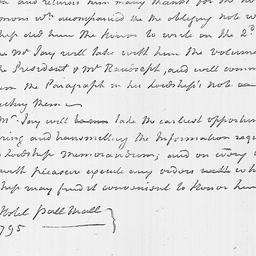 and returns him many thanks for the
accompanied the the obliging note
did him the honor to write on the 2d
Mr Jay will take with him the volume
the President & Mr Randolph, and will
the Paragraph in his Lordship's note
them —
Mr Jay will take the earliest
and transmitting the Information
Lordship's Memorandum; and on every
with pleasure execute any orders
may find it convenient to honor him
Hotel Pall Mall
795